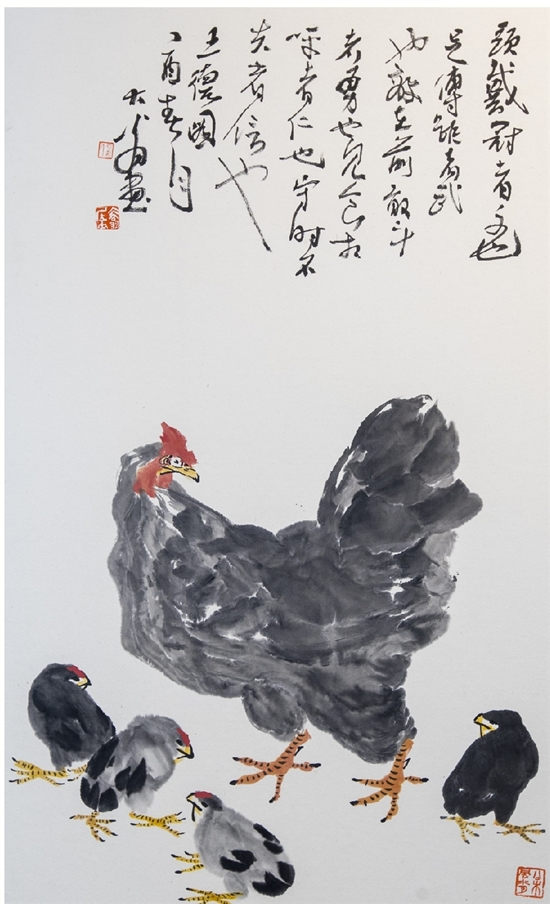 頭戴冠者文也
足傅距者武
也敵在前敢斗
者勇也見食相
呼者仁也守时不
失者信也
五德图
丁酉春月
大画